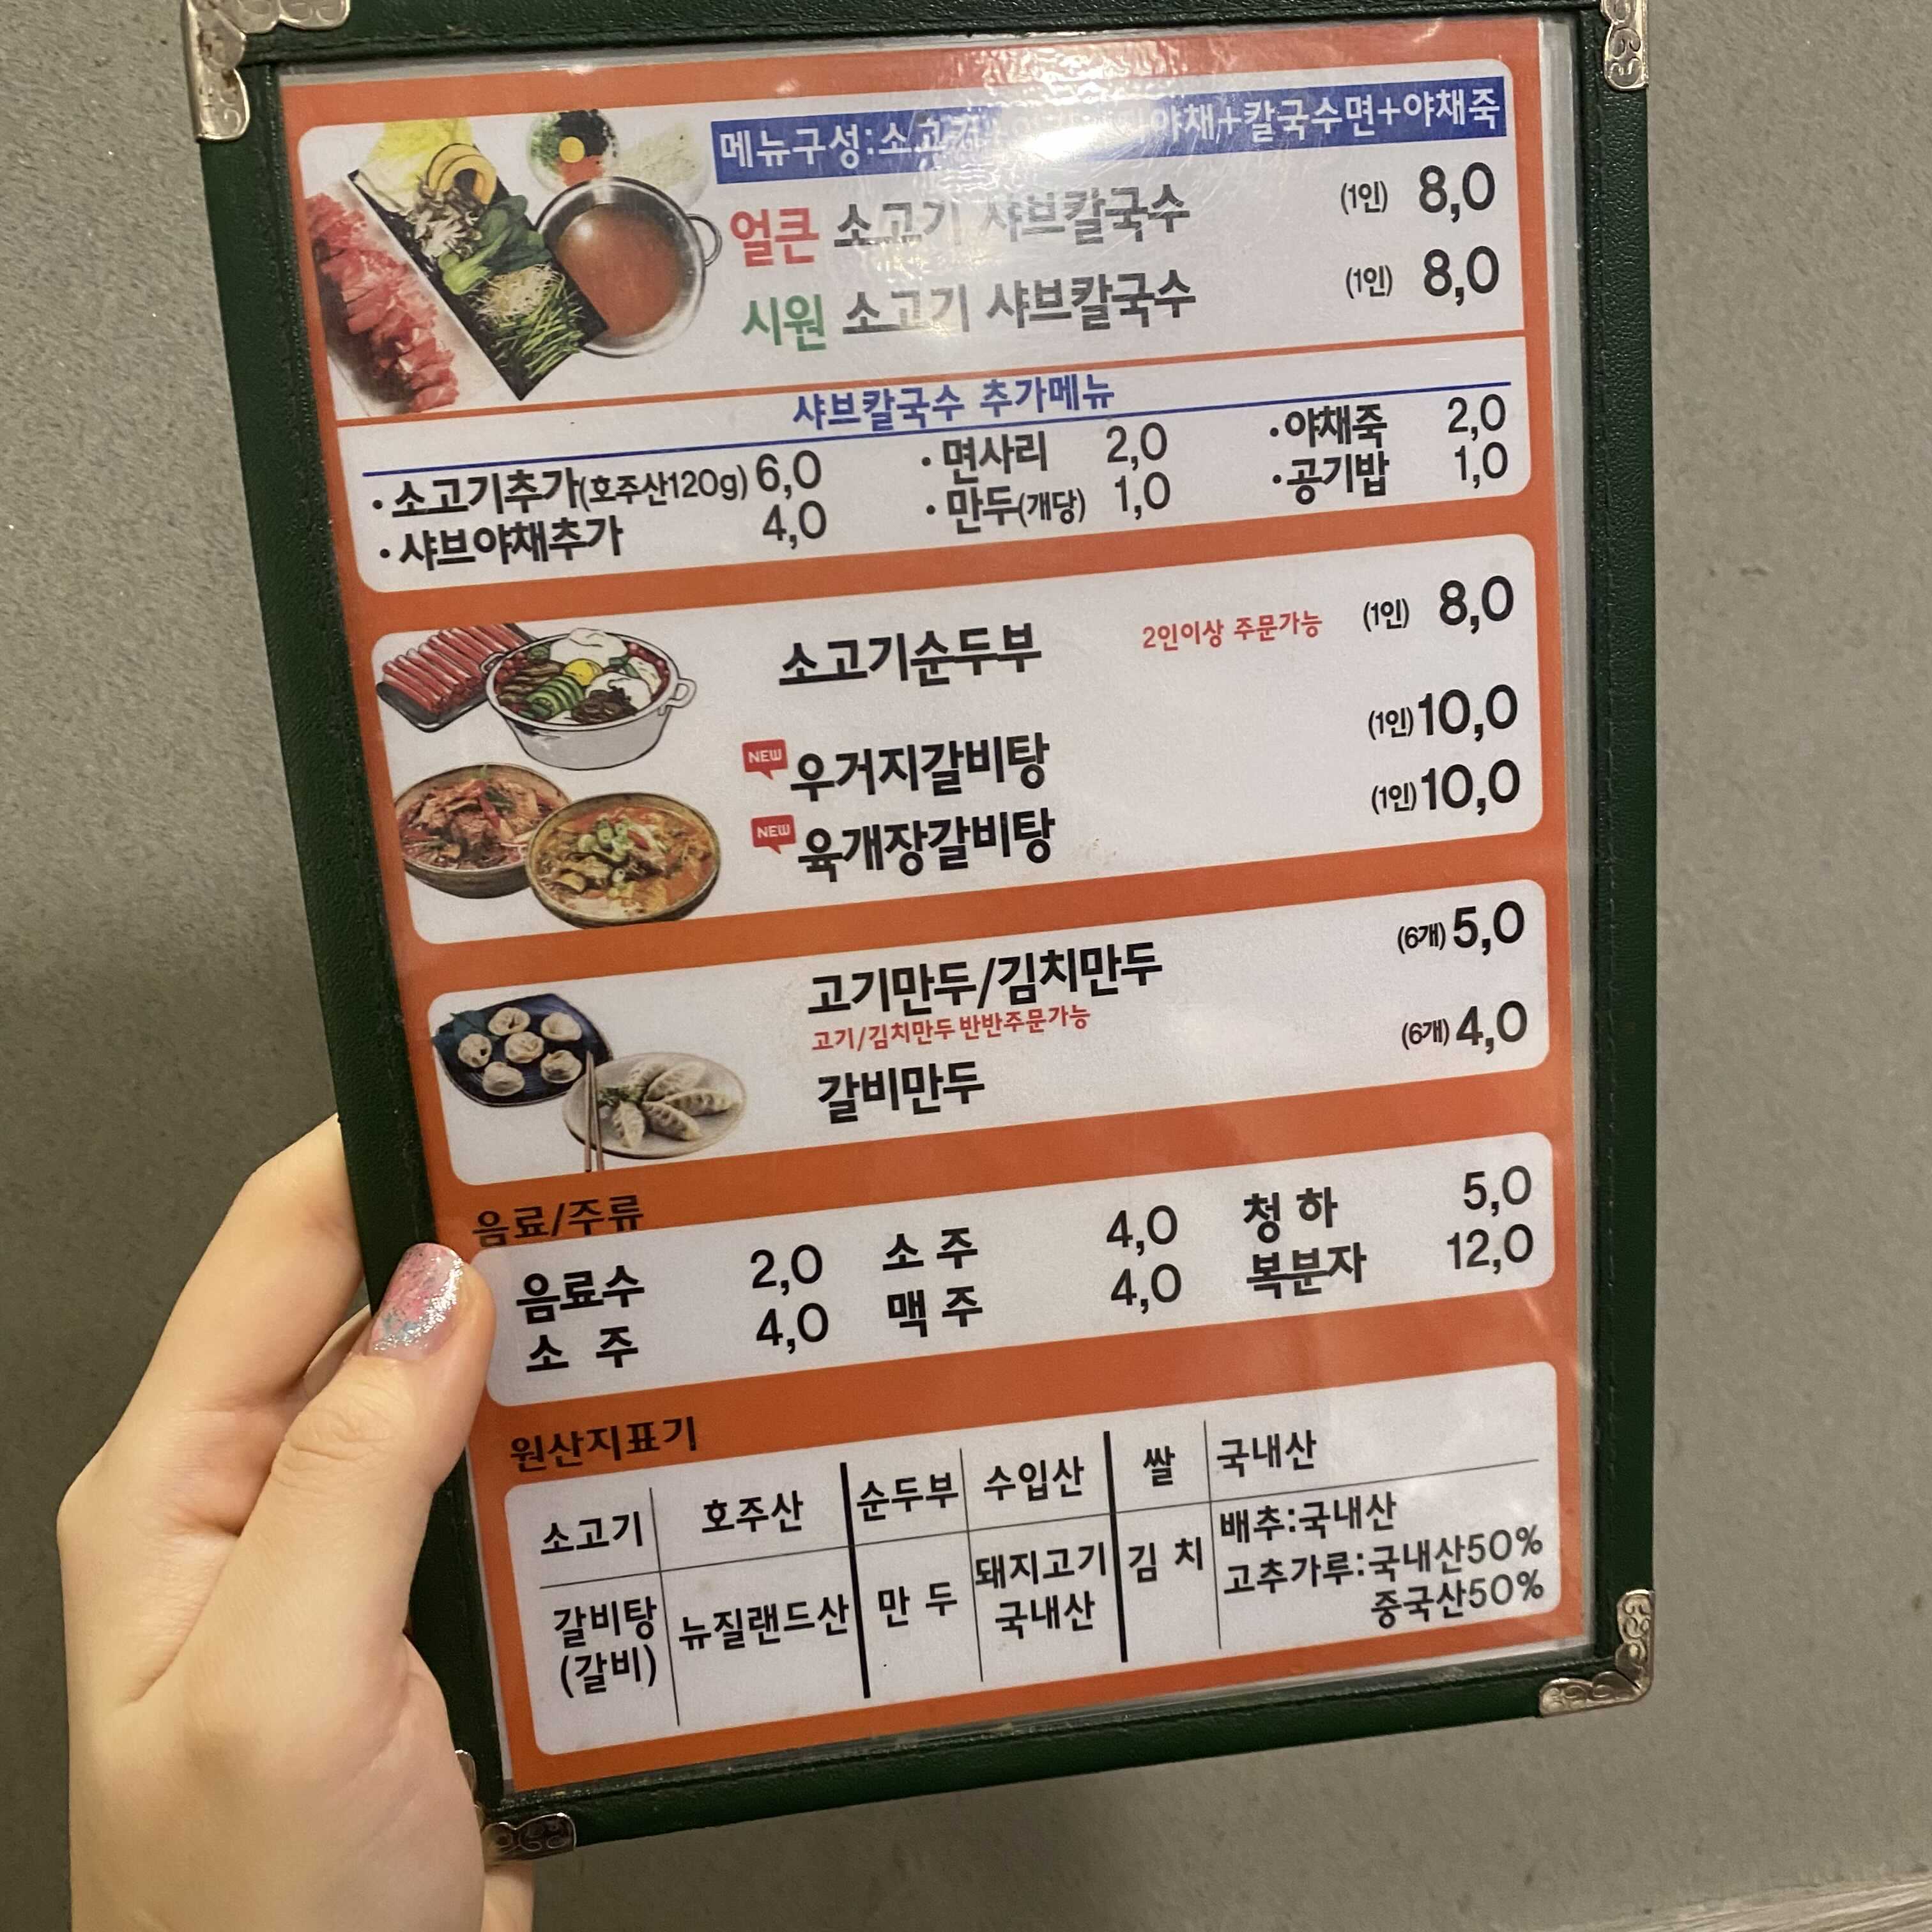 메뉴구성:소고기 야채+칼국수면+야채죽
얼큰 소고기 샤브칼국수 (1인) 8,0
시원 소고기 샤브칼국수 (1인) 8,0
샤브칼국수 추가메뉴
·소고기추가(호주산120g) 6,0 ·면사리 2,0 ·야채죽 2,0
·샤브야채추가 4,0 ·만두(개당) 1,0 ·공기밥 1,0
소고기순두부 2인이상 주문가능 (1인) 8,0
NEW 우거지갈비탕 (1인) 10,0
NEW 육개장갈비탕 (1인) 10,0
고기만두/김치만두 (6개) 5,0
고기/김치만두 반반주문가능
갈비만두 (6개) 4,0
음료/주류
음료수 2,0 소 주 4,0 청 하 5,0
소 주 4,0 맥 주 4,0 복분자 12,0
원산지표기
소고기 호주산 순두부 수입산 쌀 국내산
갈비탕 (갈비) 뉴질랜드산 만 두 돼지고기 국내산 김 치 배추:국내산
고추가루:국내산50%
중국산50%